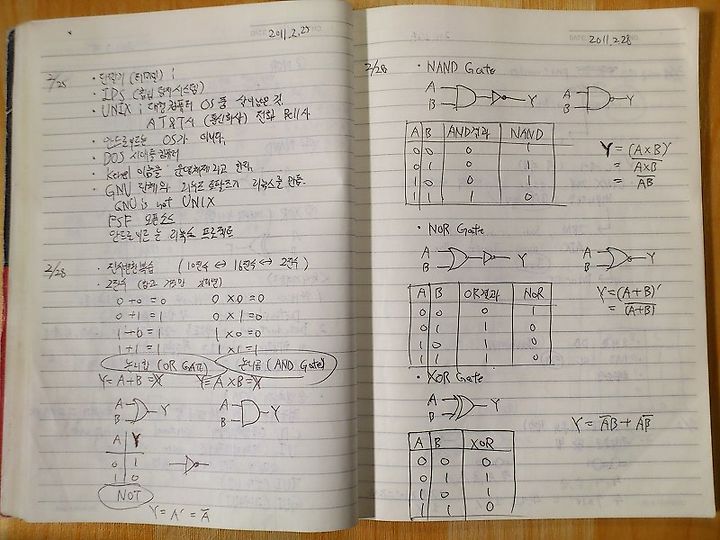 2011.2.25
2/25
· 단말기 (터미널) ;
· IDS (침입 탐지 시스템)
· UNIX ; 대형컴퓨터 OS 중
AT&T사 (통신회사) 전화 Bell사
· 안드로이드는 OS가 아니다.
· DOS 시대
· Kernel 이름을 운영체제라고 한다.
· GNU 단체의 리누스 토발즈가 리눅스를 만듦.
GNU is not UNIX
FSF 오픈소스
안드로이드는 리눅스 프로젝트
2/28
· 진수변환복습 (10진수 ↔ 16진수 ↔ 2진수)
· 2진수
0 + 0 = 0 0 x 0 = 0
0 + 1 = 1 0 x 1 = 0
1 + 0 = 1 1 x 0 = 0
1 + 1 = 1 1 x 1 = 1
논리합 (OR GATE) 논리곱 (AND Gate)
Y = A + B = X Y = A x B = X
A B Y A B Y
A Y
0 1
1 0
NOT
Y = A' = A̅
2011.2.28
2/28
· NAND Gate
A B Y A B Y
A B AND결과 NAND
0 0 0 1
0 1 0 1
1 0 0 1
1 1 1 0
Y = (A x B)'
= A̅ ̅x̅ ̅B̅
= A̅B̅
· NOR Gate
A B Y A B Y
A B OR결과 NOR
0 0 0 1
0 1 1 0
1 0 1 0
1 1 1 0
Y = (A + B)'
= (A̅+̅B̅)
· XOR Gate
A B Y
Y = A̅B + AB̅
A B XOR
0 0 0
0 1 1
1 0 1
1 1 0